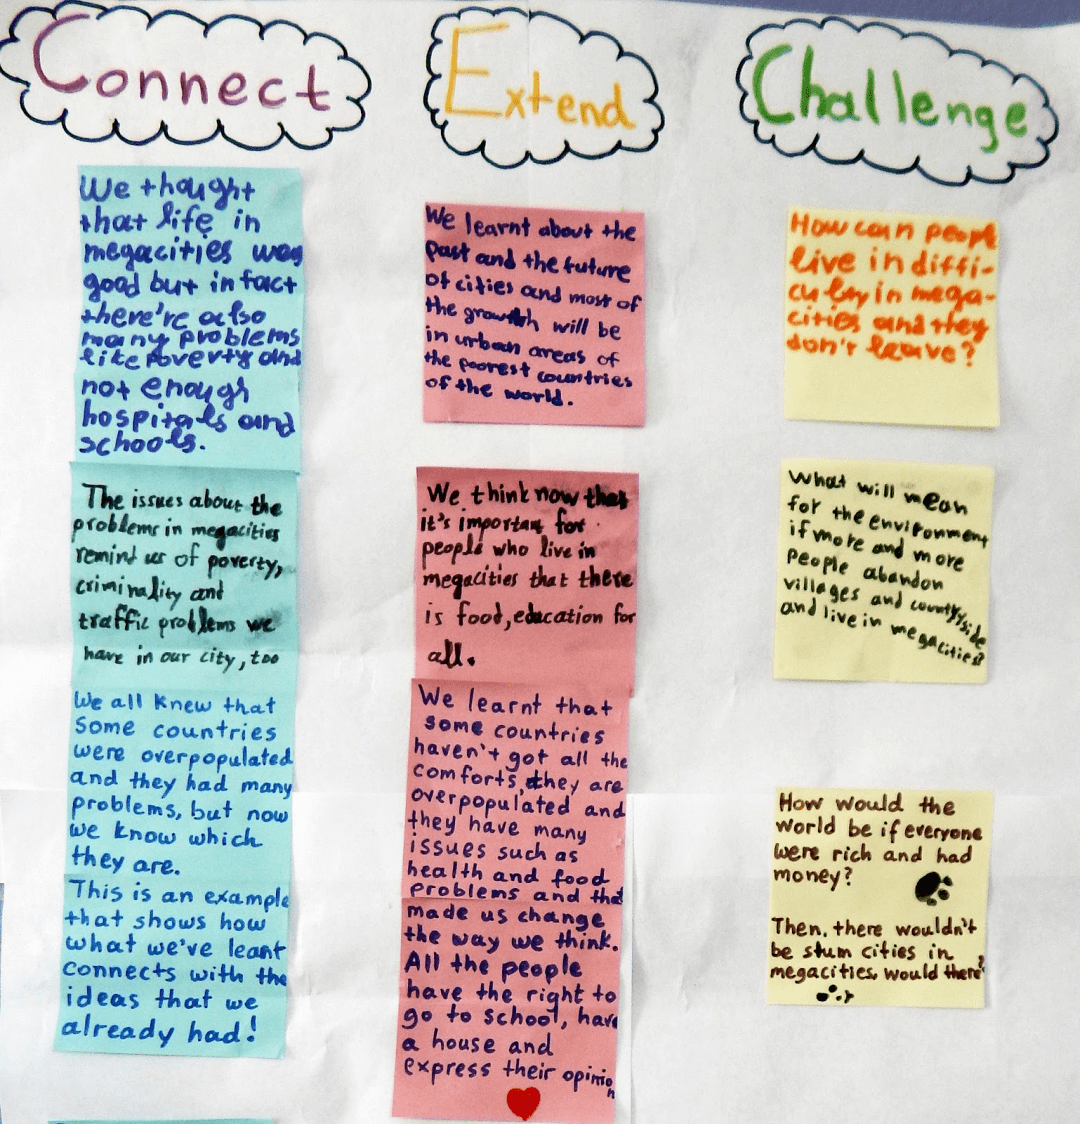 Connect
We thought
that life in
megacities was
good but in fact
there're also
many problems
like poverty and
not enough
hospitals and
schools.
The issues about the
problems in megacities
remind us of poverty,
criminality and
traffic problems we
have in our city, too
We all knew that
some countries
were overpopulated
and they had many
problems, but now
we know which
they are.
This is an example
that shows how
what we've leant
connects with the
ideas that we
already had!
Extend
We learnt about the
past and the future
of cities and most of
the growth will be
in urban areas of
the poorest countries
of the world.
We think now that
it's important for
people who live in
megacities that there
is food, education for
all.
We learnt that
some countries
haven't got all the
comforts, they are
overpopulated and
they have many
issues such as
health and food
problems and that
made us change
the way we think.
All the people
have the right to
go to school, have
a house and
express their opinion
Challenge
How can people
live in diffi-
culty in mega-
cities and they
don't leave?
What will mean
for the environment
if more and more
people abandon
villages and countryside
and live in megacities?
How would the
world be if everyone
were rich and had
money?
Then, there wouldn't
be slum cities in
megacities, would there?